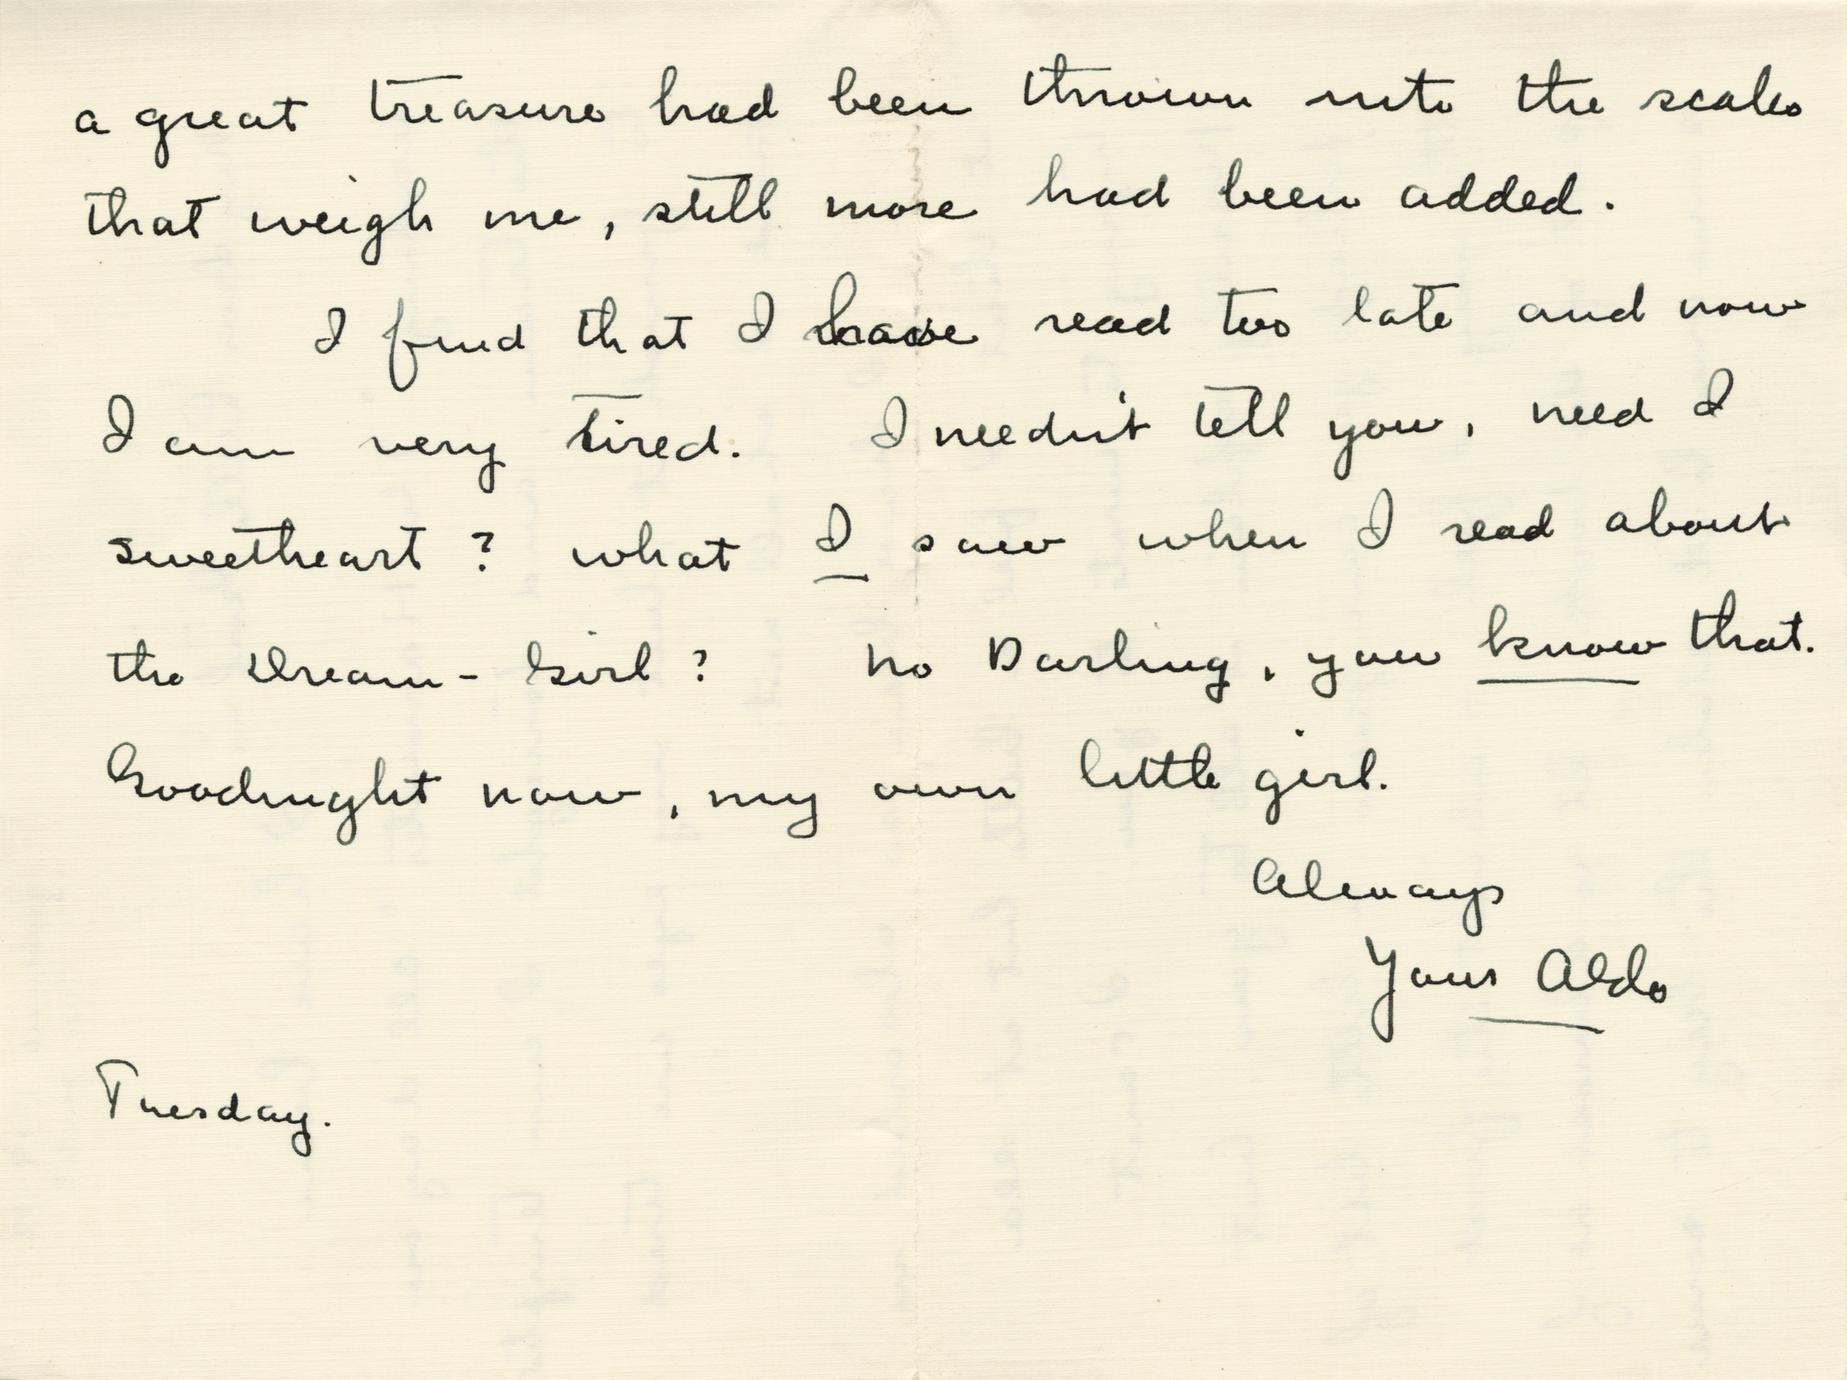 a great treasure had been thrown into the scales
that weigh me, still more had been added.
I find that I have read too late and now
I am very tired. I needn't tell you, need I
sweetheart ? what I saw when I read about
the Dream - Girl ? No Darling, you know that.
Goodnight now, my own little girl.
Always
Your Aldo
Tuesday.